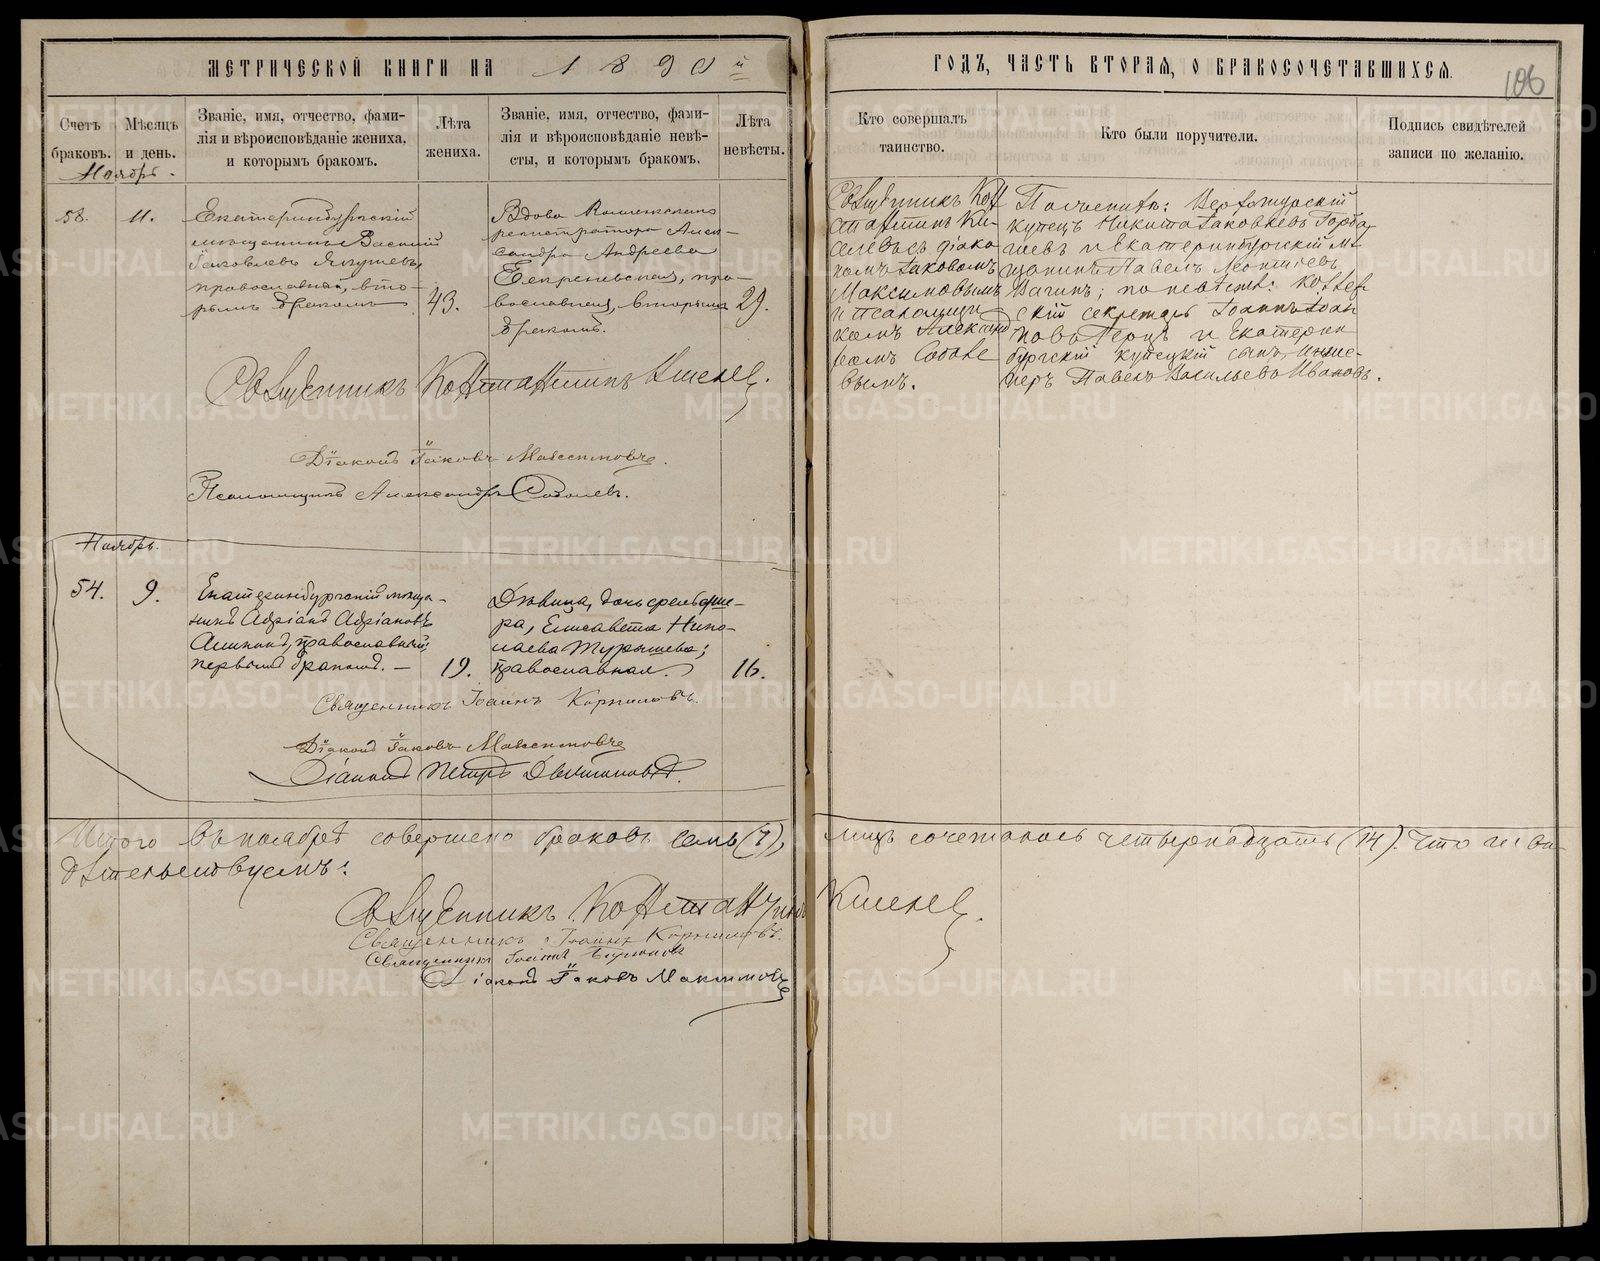 МЕТРИЧЕСКОЙ КНИГИ НА 1890 й
ГОДЪ, ЧАСТЬ ВТОРАЯ, О БРАКОСОЧЕТАВШИХСЯ.
106
Счетъ
браковъ.
Мѣсяцъ
и день.
Званіе, имя, отчество, фами-
лія и вѣроисповѣданіе жениха,
и которымъ бракомъ.
Лѣта
жениха.
Званіе, имя, отчество, фами-
лія и вѣроисповѣданіе невѣ-
сты, и которымъ бракомъ.
Лѣта
невѣсты.
Кто совершалъ
таинство.
Кто были поручители.
Подпись свидѣтелей
записи по желанію.
Ноябрь.
58.
11.
Екатеринбургскій
мѣщанинъ Василій
Іаковлевъ Якушевъ,
православный, вто-
рымъ бракомъ
43.
Вдова Коллежскаго
регистратора Алек-
сандра Андреева
православная, вторымъ
бракомъ.
29.
Священникъ Кон
стантинъ Ки-
селевъ съ діако
номъ Іаковомъ
Максимовымъ
и псаломщи
комъ Александ
ромъ Соболе
вымъ.
По женихѣ: Верхотурскій
купецъ Никита Іаковлевъ Горба
чевъ и Екатеринбургскій мѣ
щанинъ Павелъ Леонтьевъ
Вагинъ; по невѣстѣ: Коллеж
скій секретарь Іоаннъ Іоан
новъ Герцъ и Екатерин
бургскій купеческій сынъ, инже-
неръ Павелъ Васильевъ Ивановъ.
Священникъ Константинъ Киселевъ.
Діаконъ Іаковъ Максимовъ.
Псаломщикъ Александръ Соболевъ.
Ноябрь.
54.
9.
Екатеринбургскій мѣща-
нинъ Адріанъ Адріановъ
православный,
первымъ бракомъ. —
19.
Дѣвица, дочь
ра, Елисавета Нико-
лаева Турышева;
православная.
16.
Священникъ Іоаннъ Корниловъ.
Діаконъ Іаковъ Максимовъ
Діаконъ Петръ
Итого въ ноябрѣ совершено браковъ семь (7), лицъ сочеталось четырнадцать (14). Что и сви-
дѣтельствуемъ:
Священникъ Константинъ Киселевъ.
Священникъ Іоаннъ Корниловъ.
Священникъ Іоаннъ
Діаконъ Іаковъ Максимовъ
METRIKI.GASO-URAL.RU